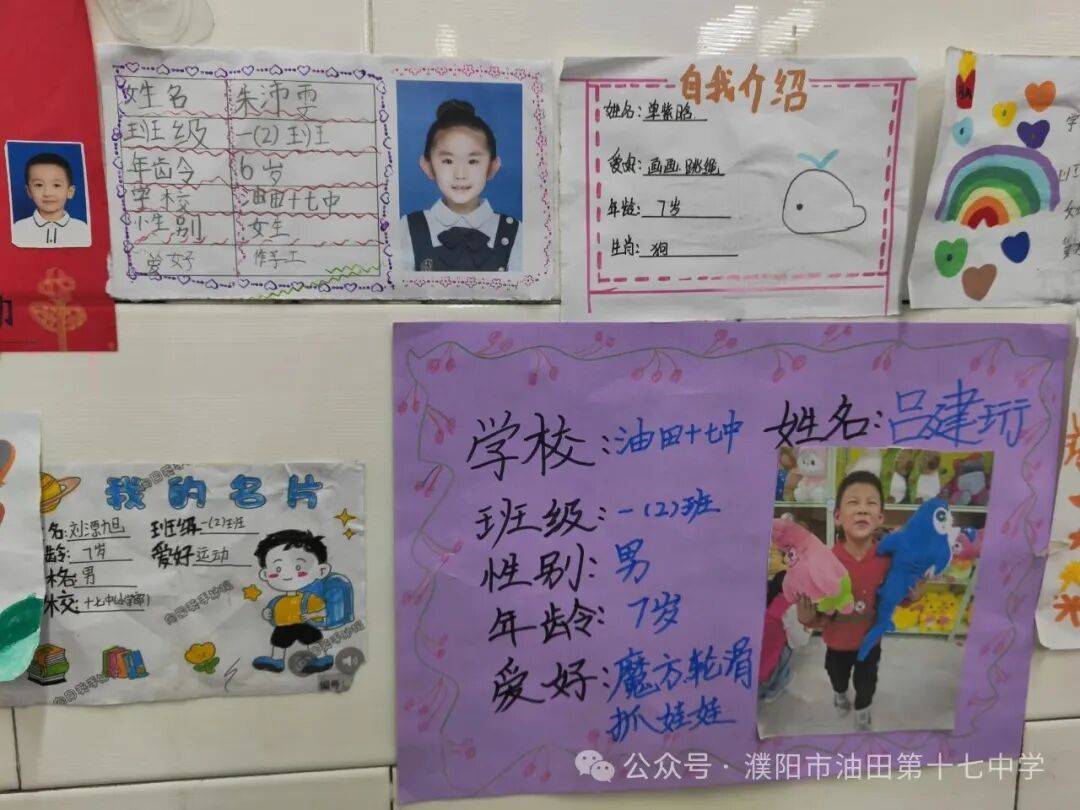 姓名 朱沛雯
班级 一(2)班
年齿令 6岁
学校 油田十七中
性别 女生
爱好 作手工
自我介绍
姓名:单紫晗
爱好:画画.跳绳
年龄:7岁
生肖:狗
我的名片
名:刘漂旭 班级一(2)班
龄:7岁 爱好运动
男
校:十七中(小学部)
编号:
学校:油田十七中 姓名:吕建珩
班级:一(2)班
性别:男
年龄:7岁
爱好:魔方轮滑
抓娃娃
公众号·濮阳市油田第十七中学